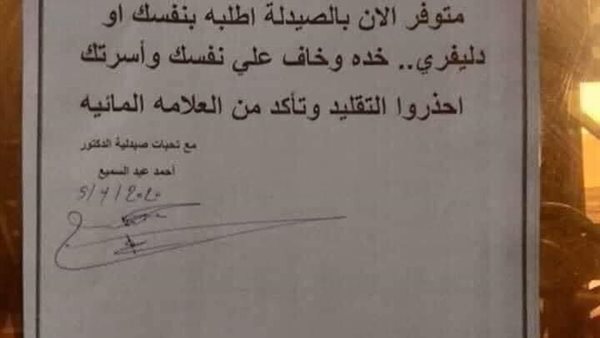 متوفر الان بالصيدلة اطلبه بنفسك او
دليفري.. خده وخاف علي نفسك وأسرتك
احذروا التقليد وتأكد من العلامه المائيه
مع تحيات صيدلية الدكتور
أحمد عبد السميع